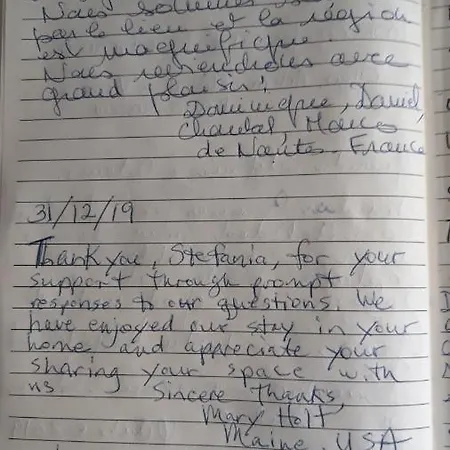 Nous sommes
par le lieu et la région
est magnifique.
Nous reviendrons avec
grand plaisir!
Dominique, Daniel,
Chantal, Marc
de Nantes. France
31/12/19
Thank you, Stefania, for your
support through prompt
responses to our questions. We
have enjoyed our stay in your
home and appreciate your
sharing your space with
us. Sincere thanks,
Mary Holt
Maine, USA